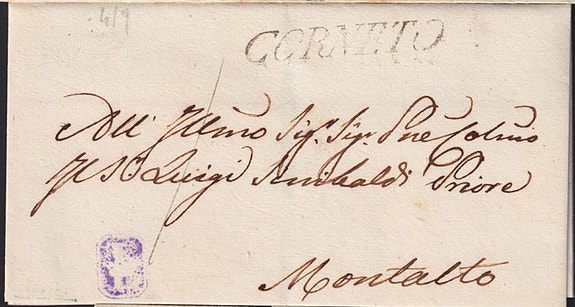 4/9
CORNETO
All' Illmo Sigr. Sigr. Pne Colmo
Il Sr. Luigi Sinibaldi Priore
Montalto